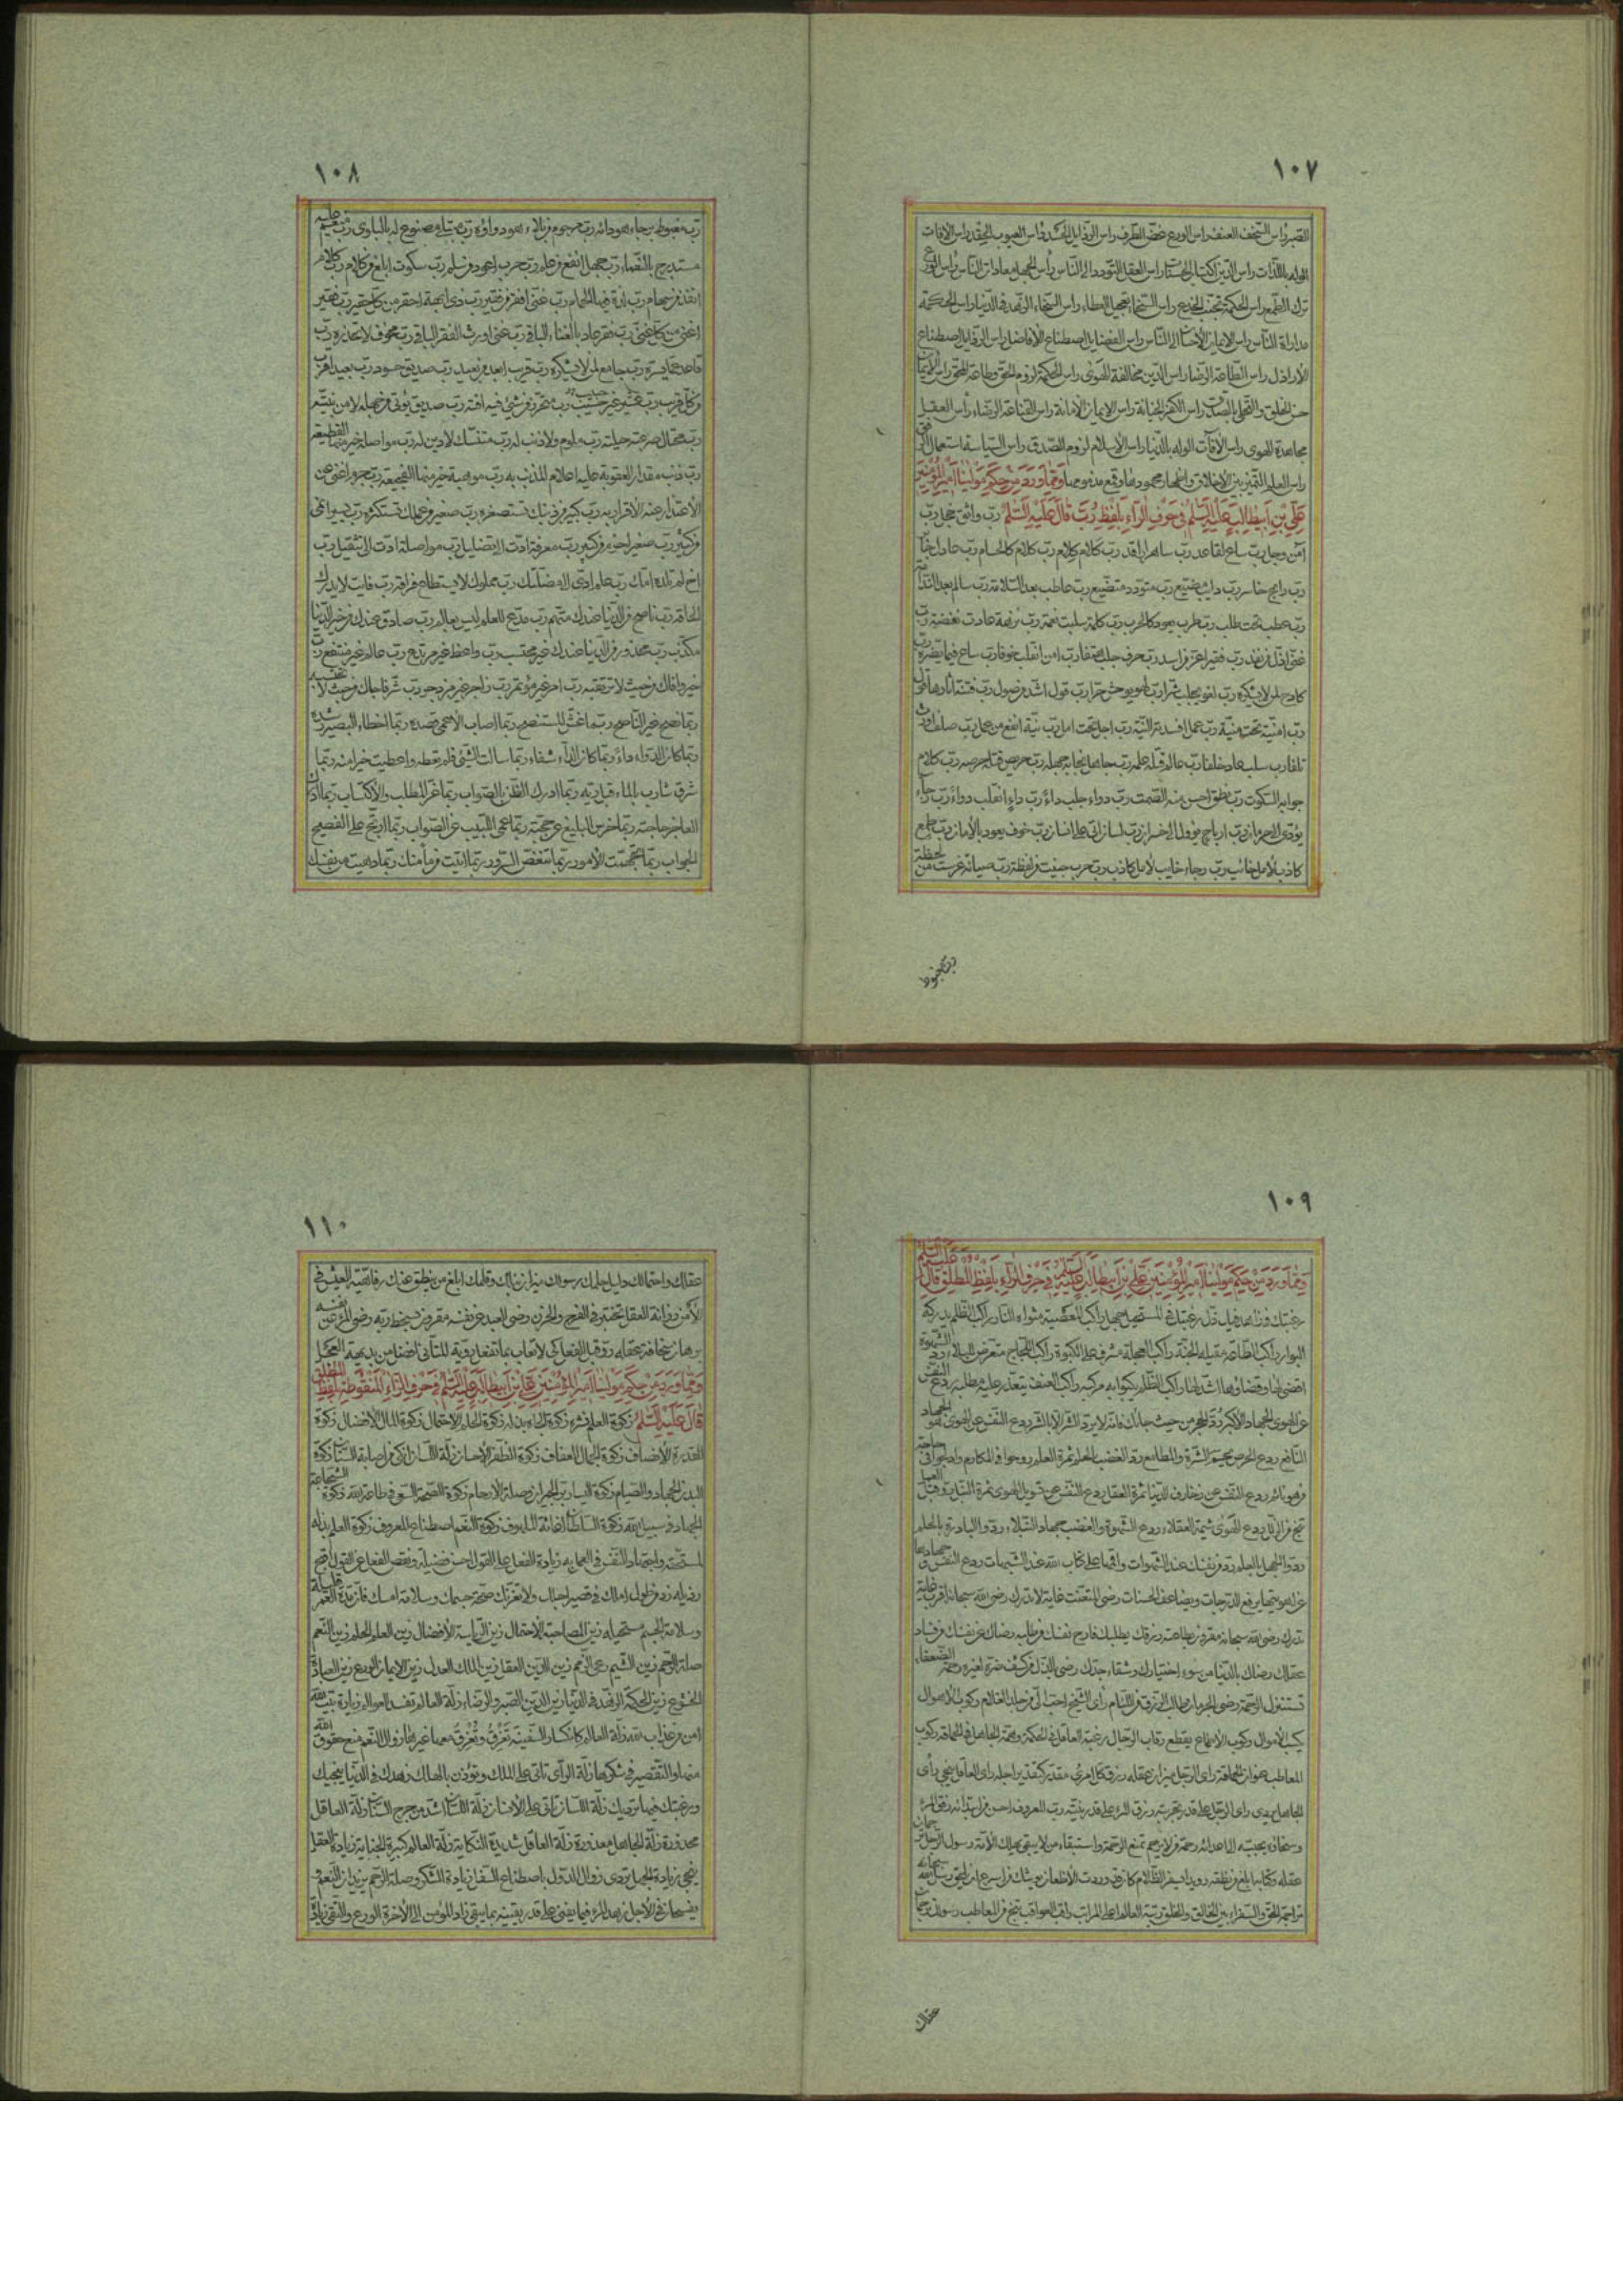 ١٠٧
الصبر راس السخف العنف راس الورع غض الطرف راس الرذايل الحسد راس العيوب الحقد راس الافات
الوله باللذات راس الدين اكتساب الحسنات راس العقل التودد الى الناس راس الجهل معاداة الناس راس الورع
ترك الطمع راس الحكمة تجنب الخدع راس السخاء تعجيل العطاء راس السخاء الزهد في الدنيا راس الحكمة
مداراة الناس راس الايمان الاحسان الى الناس راس الفضايل اصطناع الافاضل راس الرذايل اصطناع
الاراذل راس الطاعة الرضا راس الدين مخالفة الهوى راس الحكمة لزوم الحق وطاعة المحق راس الايمان
حسن الخلق والتحلى بالصدق راس الكفر الخيانة راس الايمان الامانة راس القناعة الرضاء راس العقل
مجاهدة الهوى راس الافات الوله بالدنيا راس الاسلام لزوم الصدق راس السياسة استعمال الرفق
راس العلم التمييز بين الاخلاق واظهار محمودها وقمع مذمومها ومما ورد من حكم مولينا امير المؤمنين
علي بن ابيطالب عليه السلم في حرف الراء بلفظ رب قال عليه السلم رب واثق خجل رب
امن وجل رب ساع لقاعد رب ساهر لراقد رب كلام كلام رب كلام كالحسام رب عادل جائر
رب رابح خاسر رب دايب مضيع رب متودد متصنع رب عاطب بعد السلامة رب سالم بعد الندامة
رب عطب تحت طلب رب طرب يعود كالحرب رب كلمة سلبت نعمة رب نزهة عادت نغصة رب
غنى اذل من نقد رب فقير اعز من اسد رب حرف جلب حتفا رب امن انقلب خوفا رب ساع فيما يضره رب
كادح لمن لا يشكره رب لغو يجلب شرا رب لهو يوحش حرا رب قول اشد من صول رب فتنة اثارها قول
رب امنية تحت منية رب عمل افسدته النية رب اجل تحت امل رب نية انفع من عمل رب صلف اورث
تلفا رب سلب عاد خلفا رب عالم قتله علمه رب جاهل نجابه جهله رب حريص قتله حرصه رب كلام
جوابه السكوت رب نطق احسن منه الصمت رب دواء جلب داء رب داء انقلب دواء رب رجاء
يؤدى الى حرمان رب ارباح يؤول الى خسران رب لسان اتى على انسان رب خوف يعود بالامان رب طمع
كاذب لامل خائب رب رجاء خايب لامل كاذب رب حرب جنيت من لفظة رب صبابة غرست من لحظة
رب مغبوط
١٠٨
رب مغبوط برجاء هو داؤه رب مرحوم من بلاء هو دواؤه رب مبتلى مصنوع له بالبلوى رب منعم عليه
مستدرج بالنعماء رب جهل انفع من علم رب حرب اعود من سلم رب سكوت ابلغ من كلام رب كلام
انفذ من سهام رب لذة فيها الحمام رب غنى افقر من فقير رب ذى ابهة احقر من كل حقير رب فقير
اغنى من كل غنى رب فقر عاد بالغناء الباقى رب غنى اورث الفقر الباقى رب مخوف لا تحذره رب
قاعد عما يسره رب جامع لمن لا يشكره رب قريب ابعد من بعيد رب صديق حسود رب بعيد اقرب
من كل قريب رب عشير غير حبيب رب متحرز من شئ فيه افته رب صديق يؤتى من جهله لا من نيته
رب محتال صرعته حيلته رب ملوم ولا ذنب له رب متنسك لا دين له رب مواصلة خير منها القطيعة
رب ذنب مقدار العقوبة عليه اعلام المذنب به رب موهبة خير منها الفجيعة رب جرم اغنى عن
الاعتذار عنه الاقرار به رب كبير من ذنبك تستصغره رب صغير من عملك تستكثره رب يسير انمى
من كثير رب صغير احزم من كبير رب معرفة ادت الى تضليل رب مواصلة ادت الى تثقيل رب
اخ لم تلده امك رب علم ادى الى مضلتك رب مملوك لا يستطاع فراقه رب فايت لا يدرك
لحاقه رب ناصح من الدنيا عندك متهم رب مدع للعلم ليس بعالم رب صادق عندك من خبر الدنيا
مكذب رب محذور من الدنيا عندك غير محتسب رب واعظ غير مرتدع رب عالم غير منتفع رب
خير وافاك من حيث لا ترتقبه رب امر غير مؤتمر رب زاجر غير مزدجر رب شر فاجاك من حيث لا تحتسبه
ربما نصح غير الناصح ربما غش المستنصح ربما اصاب الاعمى قصده ربما اخطاء البصير رشده
ربما كان الدواء داء ربما كان الداء شفاء ربما سالت الشئ فلم تعطه واعطيت خيرا منه ربما
شرق شارب بالماء قبل ريه ربما ادرك الظن الصواب ربما عز المطلب والاكتساب ربما ادرك
العاجز حاجته ربما اخرس البليغ عن حجته ربما عمى اللبيب عن الصواب ربما ارتج على الفصيح
الجواب ربما تجهمت الامور ربما تنغص السرور ربما اتيت من مأمنك ربما دهيت من نفسك
١٠٩
ومما ورد من حكم مولينا امير المؤمنين علي بن ابيطالب عليه السلم في حرف الراء بلفظ المطلق قال عليه السلم
رغبتك في زاهد فيك ذل رغبتك في المستحيل جهل راكب المعصية مثواه النار راكب الظلم يدركه
البوار راكب الطاعة مقيله الجنة راكب العجلة مشرف على الكبوة راكب اللجاج متعرض للبلاء رد الشهوة
اقضى لها وقضاؤها اشد لها راكب الظلم يكبوا به مركبه راكب العنف يتعذر عليه مطلبه ردع النفس
عن الهوى الجهاد الاكبر رد الحجر من حيث جاءك فانه لا يرد الشر الا بالشر ردع النفس عن الهوى هو الجهاد
النافع ردع الحرص يحسم الشره والمطامع رد الغضب بالحلم ثمرة العلم روحوا في المكارم وادلجوا في حاجة
من هو نائم ردع النفس عن زخارف الدنيا ثمرة العقل ردع النفس عن تسويل الهوى ثمرة النبل رو قبل العمل
تنج من الزلل ردع الهوى شيمة العقلاء ردع الشهوة والغضب جهاد النبلاء ردوا البادرة بالحلم
ردوا الجهل بالعلم رد من نفسك عند الشهوات واقمها على كتاب الله عند الشبهات ردع النفس وجهادها
عن اهويتها يرفع الدرجات ويضاعف الحسنات رضى المتعنت غاية لا تدرك رضى الله سبحانه اقرب غاية
تدرك رضى الله سبحانه مقرون بطاعته رزقك يطلبك فارح نفسك من طلبه رضاك عن نفسك من فساد
عقلك رضاك بالدنيا من سوء اختيارك وشقاء جدك رضى بالذل من كشف ضره لغيره رحمة الضعفاء
تستنزل الرحمة رضى بالحرمان طالب الرزق من اللئام رأى الشيخ احب الى من جلد الغلام ركوب الاهوال
يكسب الاموال ركوب الاطماع يقطع رقاب الرجال رغبة العاقل في الحكمة وهمة الجاهل في الحماقة ركوب
المعاطب عنوان الحماقة راى الرجل ميزان عقله رزق كل امرئ مقدر كتقدير اجله راى العاقل ينجى راى
الجاهل يردى راى الرجل على قدر تجربته رزق المرء على قدر نيته رب المعروف احسن من ابتدائه رفق المرء
وسخاؤه يحببه الى اعدائه رحمة من لا يرحم تمنع الرحمة واستبقاء من لا يبقى يهلك الامة رسول الرجل ترجمان
عقله وكتابه ابلغ من نطقه رويدا يسفر الظلام كان قد وردت الاظعان يوشك من اسرع ان يلحق رسل الله سبحانه
تراجمة الحق والسفراء بين الخالق والخلق رتبة العالم اعلى المراتب راقب العواقب تنج من المعاطب رسولك ترجمان
عقلك
١١٠
عقلك واحتمالك دليل حلمك رسولك ميزان نبلك وقلمك ابلغ من ينطق عنك رفاهية العيش في
الامن رزانة العقل تختبر في الفرح والحزن رضى العبد عن نفسه مقرون بسخط ربه رضى المرء عن نفسه
برهان سخافة عقله رو قبل الفعل كى لا تعاب بما تفعل روية المتأنى افضل من بديهة العجل
ومما ورد من حكم مولينا امير المؤمنين علي بن ابيطالب عليه السلم في حرف الزاء المنقوطة بلفظ المطلق
قال عليه السلم زكوة العلم نشره زكوة الجاه بذله زكوة الحلم الاحتمال زكوة المال الافضال زكوة
القدرة الانصاف زكوة الجمال العفاف زكوة الظفر الاحسان زلة اللسان انكى من اصابة السنان زكوة
البدن الجهاد والصيام زكوة اليسار بر الجيران وصلة الارحام زكوة الصحة السعى في طاعة الله زكوة الشجاعة
الجهاد في سبيل الله زكوة السلطان اغاثة الملهوف زكوة النعم اصطناع المعروف زكوة العلم بذله
لمستحقه واجتهاد النفس في العمل به زيادة الفعل على القول احسن فضيلة ونقص الفعل عن القول اقبح
رذيلة زد من طول املك في قصير اجلك ولا تغرنك صحة جسمك وسلامة امسك فان مدة العمر قليلة
وسلامة الجسم مستحيلة زين المصاحبة الاحتمال زين الرياسة الافضال زين العلم الحلم زين النعم
صلة الرحم زين الشيم رعى الذمم زين الدين العقل زين الملك العدل زين الايمان الورع زين العبادة
الخشوع زين الحكمة الزهد في الدنيا زين الدين الصبر والرضاء زلة العالم تفسد العوالم زيارة بيت الله
امن من عذاب جهنم زلة العالم كانكسار السفينة تغرق وتغرق معها غيرها زوال النعم بمنع حقوق الله
منها والتقصير في شكرها زلة الرأى تاتى على الملك وتؤذن بالهلك زهدك في الدنيا ينجيك
ورغبتك فيها ترديك زلة اللسان تاتى على الانسان زلة اللسان اشد من جرح السنان زلة العاقل
محذورة زلة الجاهل معذورة زلة العاقل شديدة النكاية زلة العالم كبيرة الجناية زيادة العقل
ينجى زيادة الجهل يردى زوال الدول باصطناع السفل زيادة الشكر وصلة الرحم يزيدان النعم و
يفسحان في الاجل زهد المرء فيما يفنى على قدر يقينه بما يبقى زاد المؤمن الى الاخرة الورع والتقى زيادة